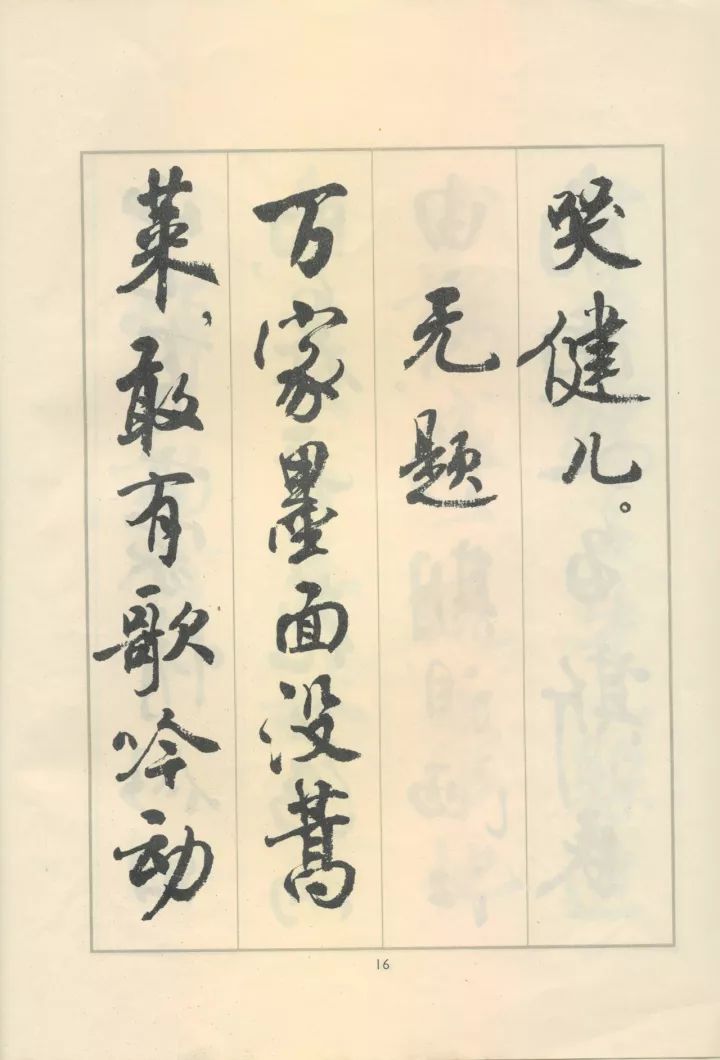 哭健儿。
无题
万家墨面没蒿
莱，敢有歌吟动
16